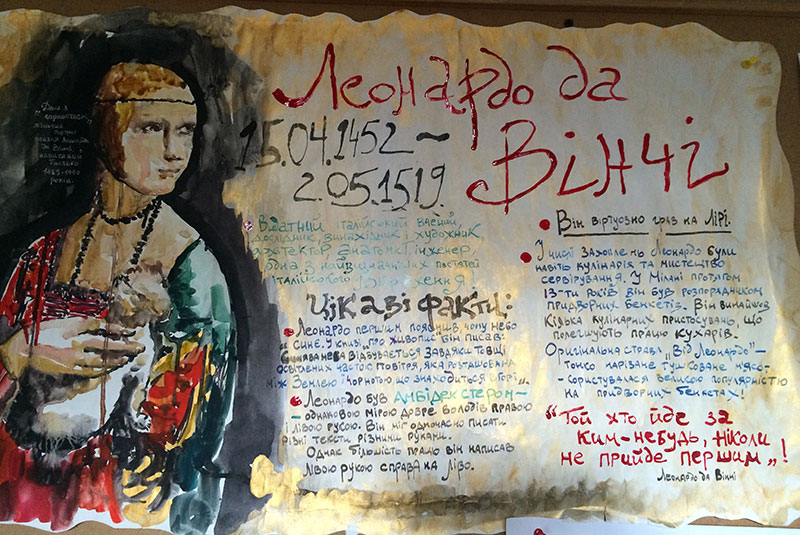 Леонардо да
Вінчі
15.04.1452 ~
2.05.1519.
Дама з
горностаєм,
Леонардо
да Вінчі,
написаний
близько
1489-1490
років.
Видатний італійський вчений,
дослідник, винахідник і художник,
архітектор, анатоміст, інженер,
одна з найвизначніших постатей
італійського Відродження!
Цікаві факти:
Леонардо першим пояснив, чому небо
синє. У книзі „про живопис" він писав:
„Синява неба відбувається завдяки товщі
освітлених часток повітря, яка розташована
між Землею і чорнотою що знаходиться вгорі".
Леонардо був амбідекстером –
– однаковою мірою добре володів правою
і лівою рукою. Він міг одночасно писати
різні тексти різними руками.
Однак більшість праць він написав
лівою рукою справа на ліво.
Він віртуозно грав на Лірі.
У числі захоплень Леонардо були
навіть кулінарія та мистецтво
сервірування. У Мілані протягом
13-ти років він був розпорядником
придворних бенкетів. Він винайшов
кілька кулінарних пристосувань, що
полегшують працю кухарів.
Оригінальна страва „Від Леонардо" –
– тонко нарізане тушковане м'ясо –
– користувалася великою популярністю
на придворних бенкетах!
"Той хто йде за
ким-небудь, ніколи
не прийде першим"!
Леонардо да Вінчі